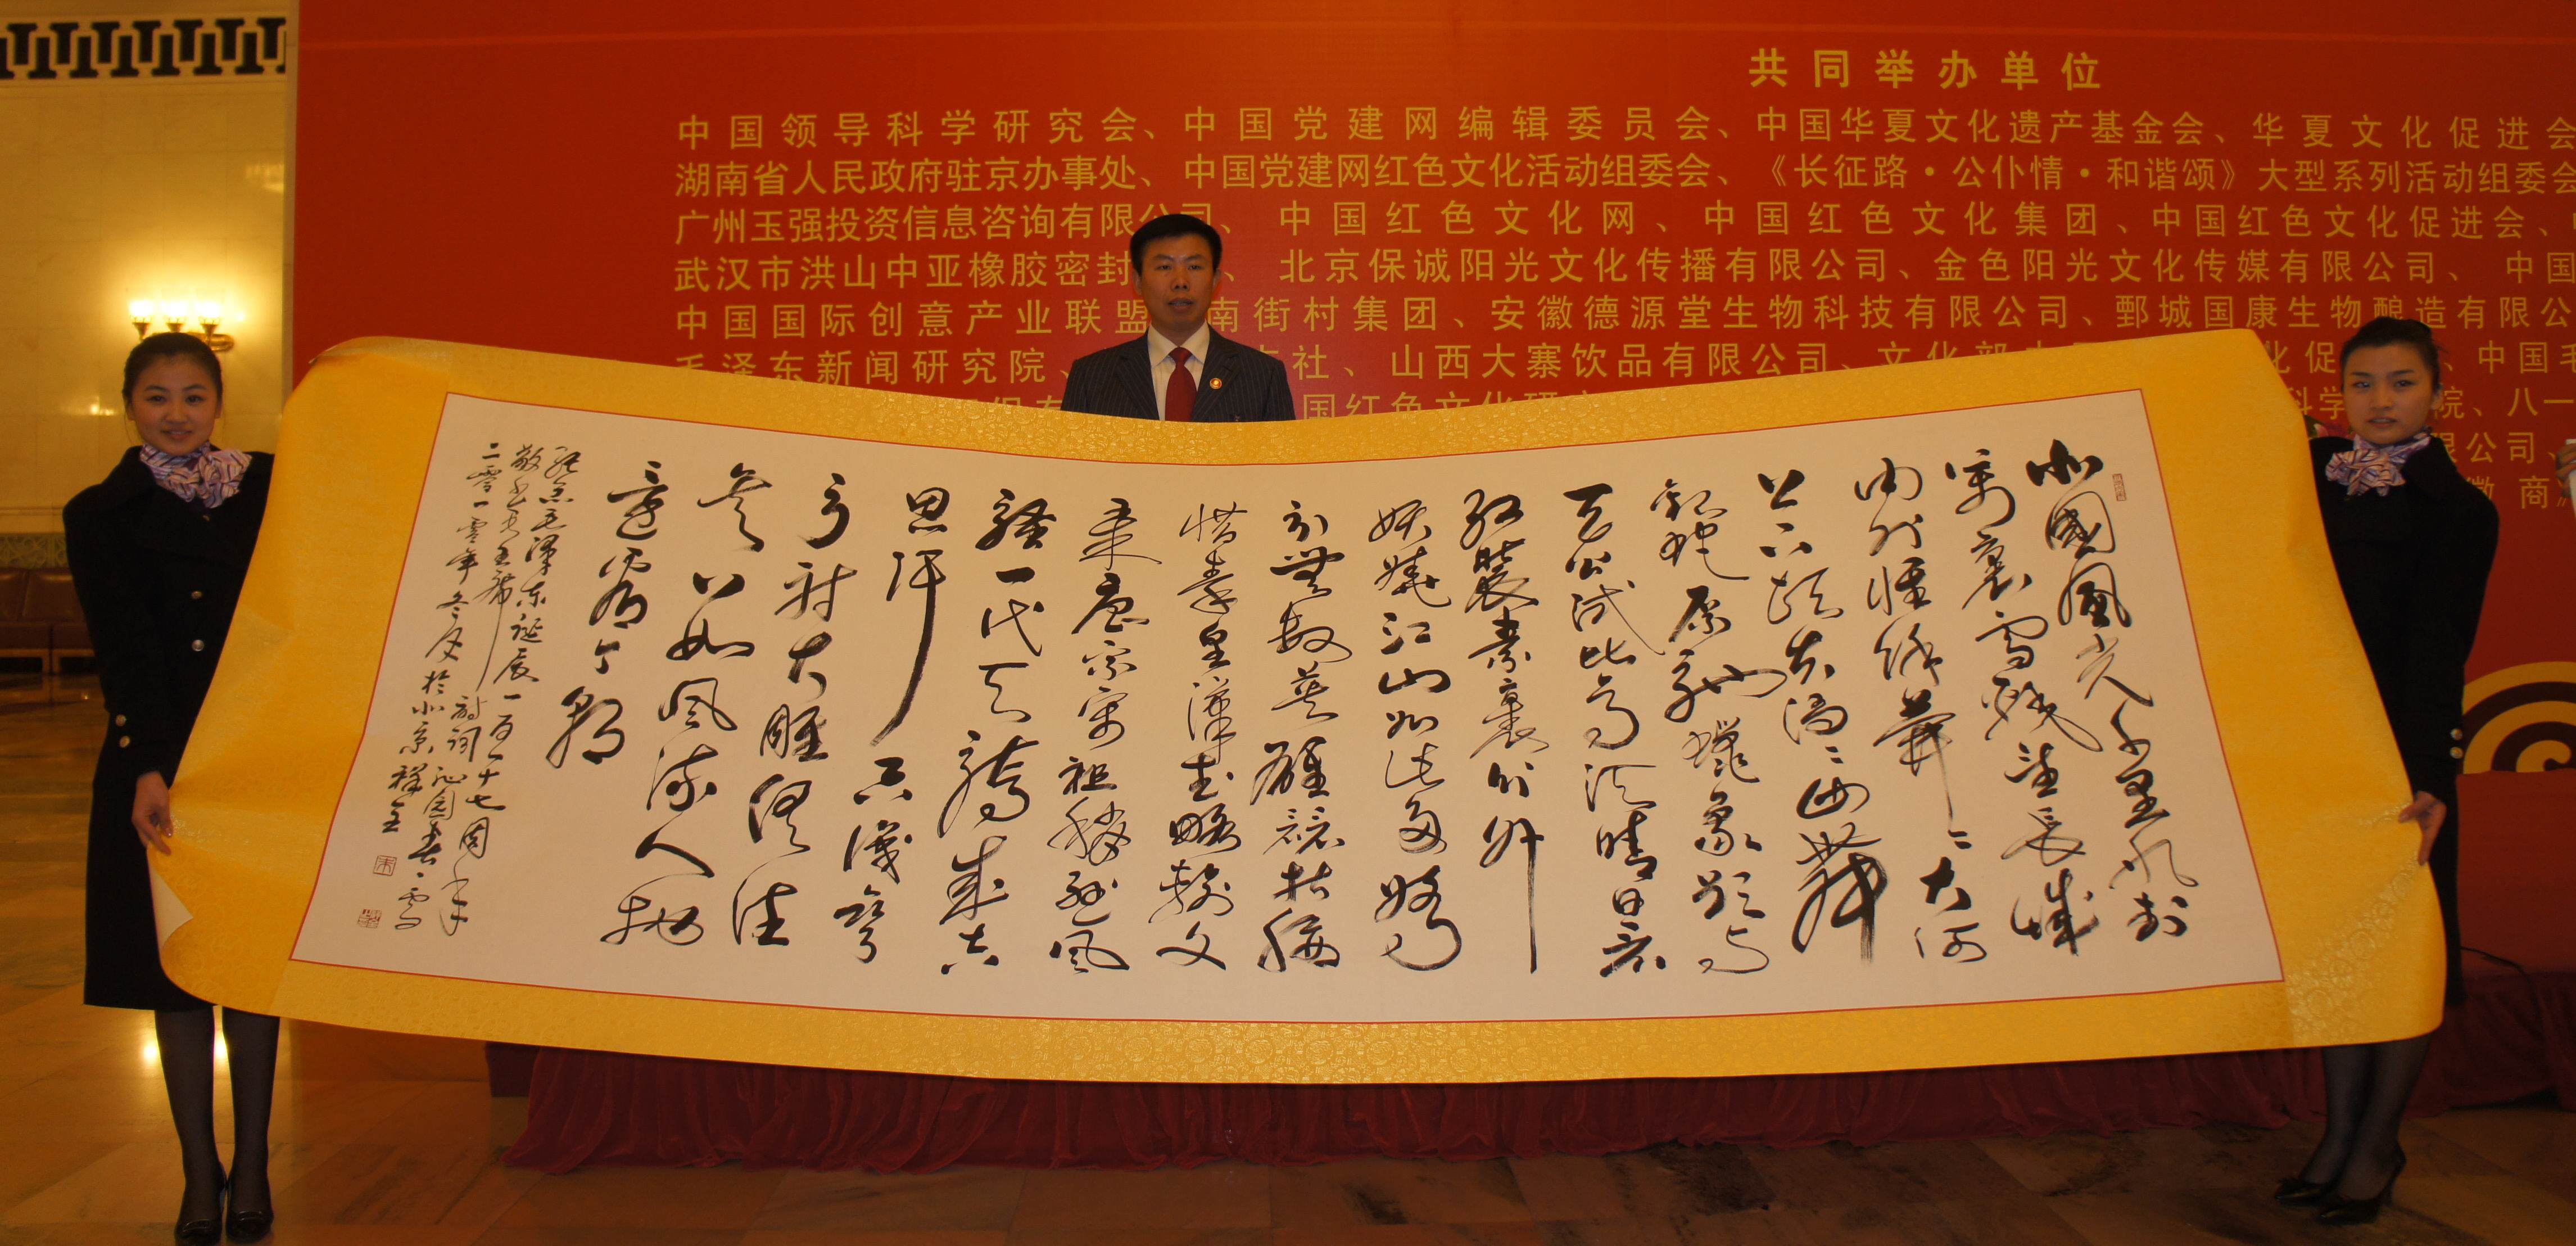 共同举办单位
中国领导科学研究会、中国党建网编辑委员会、中国华夏文化遗产基金会、华夏文化促进会
湖南省人民政府驻京办事处、中国党建网红色文化活动组委会、《长征路·公仆情·和谐颂》大型系列活动组委会
广州玉强投资信息咨询有限公司、中国红色文化网、中国红色文化集团、中国红色文化促进会、
武汉市洪山中亚橡胶密封、北京保诚阳光文化传播有限公司、金色阳光文化传媒有限公司、中国
中国国际创意产业联盟南街村集团、安徽德源堂生物科技有限公司、鄄城国康生物酿造有限公
毛泽东新闻研究院、社、山西大寨饮品有限公司、文化部中国化促、中国毛
国红色文化研科学院、八一
限公司、
徽商
北國風光千里冰封
萬裏雪飄望長城
內外惟餘莽々大河
上下頓失滔々山舞
銀蛇原馳蠟象欲与
天公試比高須晴日看
紅裝素裹分外
妖嬈江山如此多嬌
引無數英雄競折腰
惜秦皇漢武略輸文
采唐宗宋祖稍遜風
騷一代天驕成吉
思汗只識彎
弓射大雕俱往
矣數風流人物
還看今朝
紀念毛澤东誕辰一百一十七周年
敬书毛主席詩詞沁园春·雪
二零一零年冬月於北京